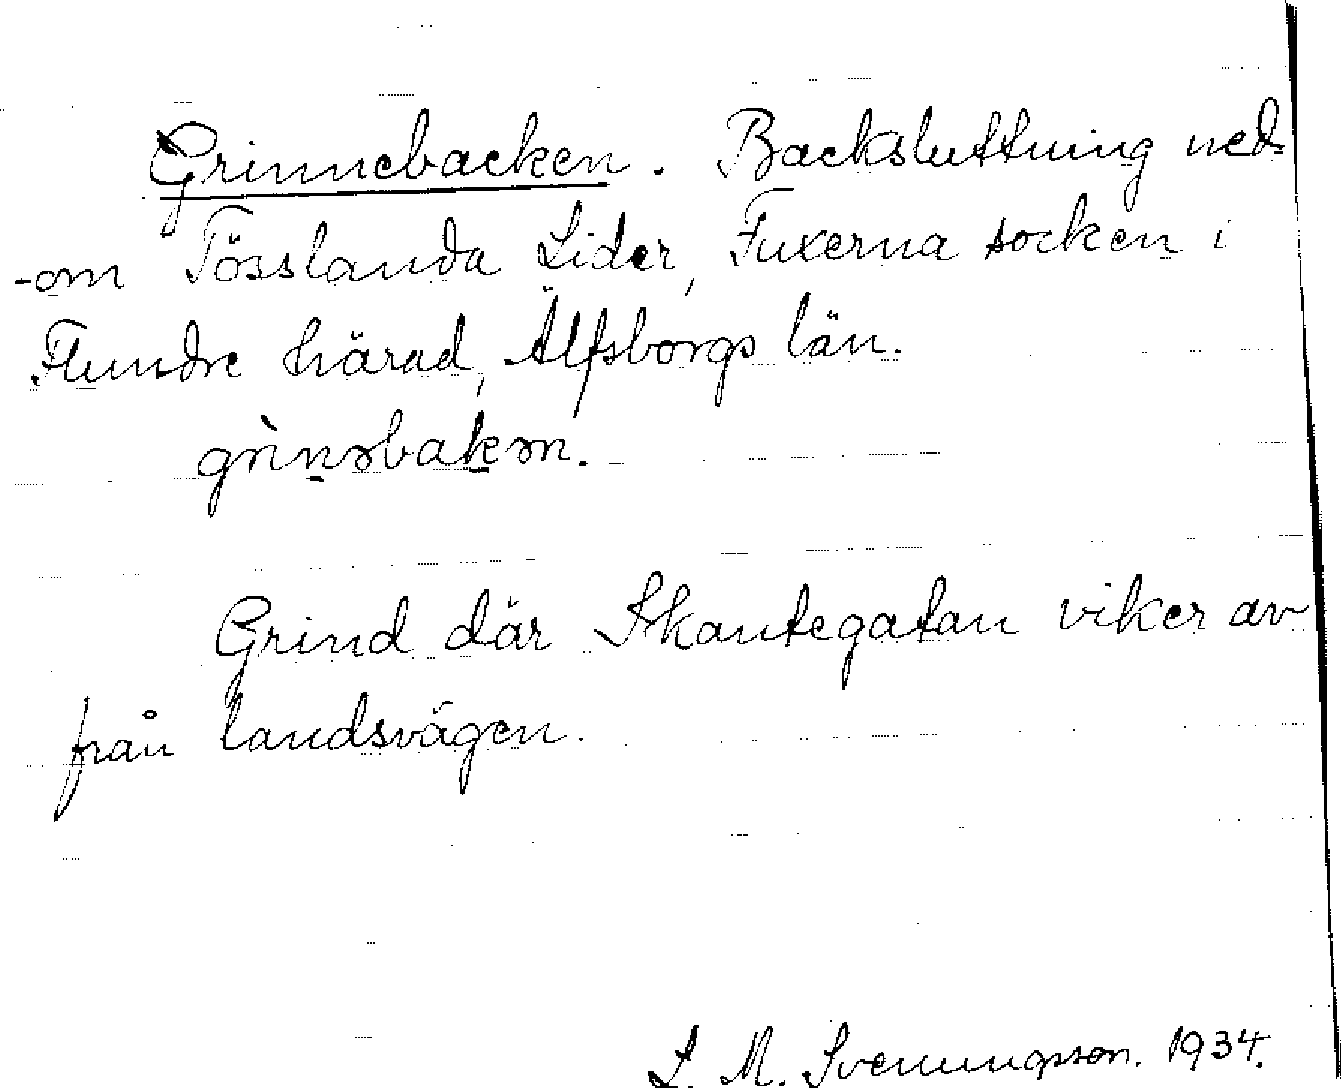 Grinnebacken. Backsluttning ned-
-om Tösslanda Lider, Fuxerna socken i
Flundre härad, Älfsborgs län.
grìnəbakən.
Grind där Skantegatan viker av
från landsvägen.
L. M. Svenungsson. 1934.